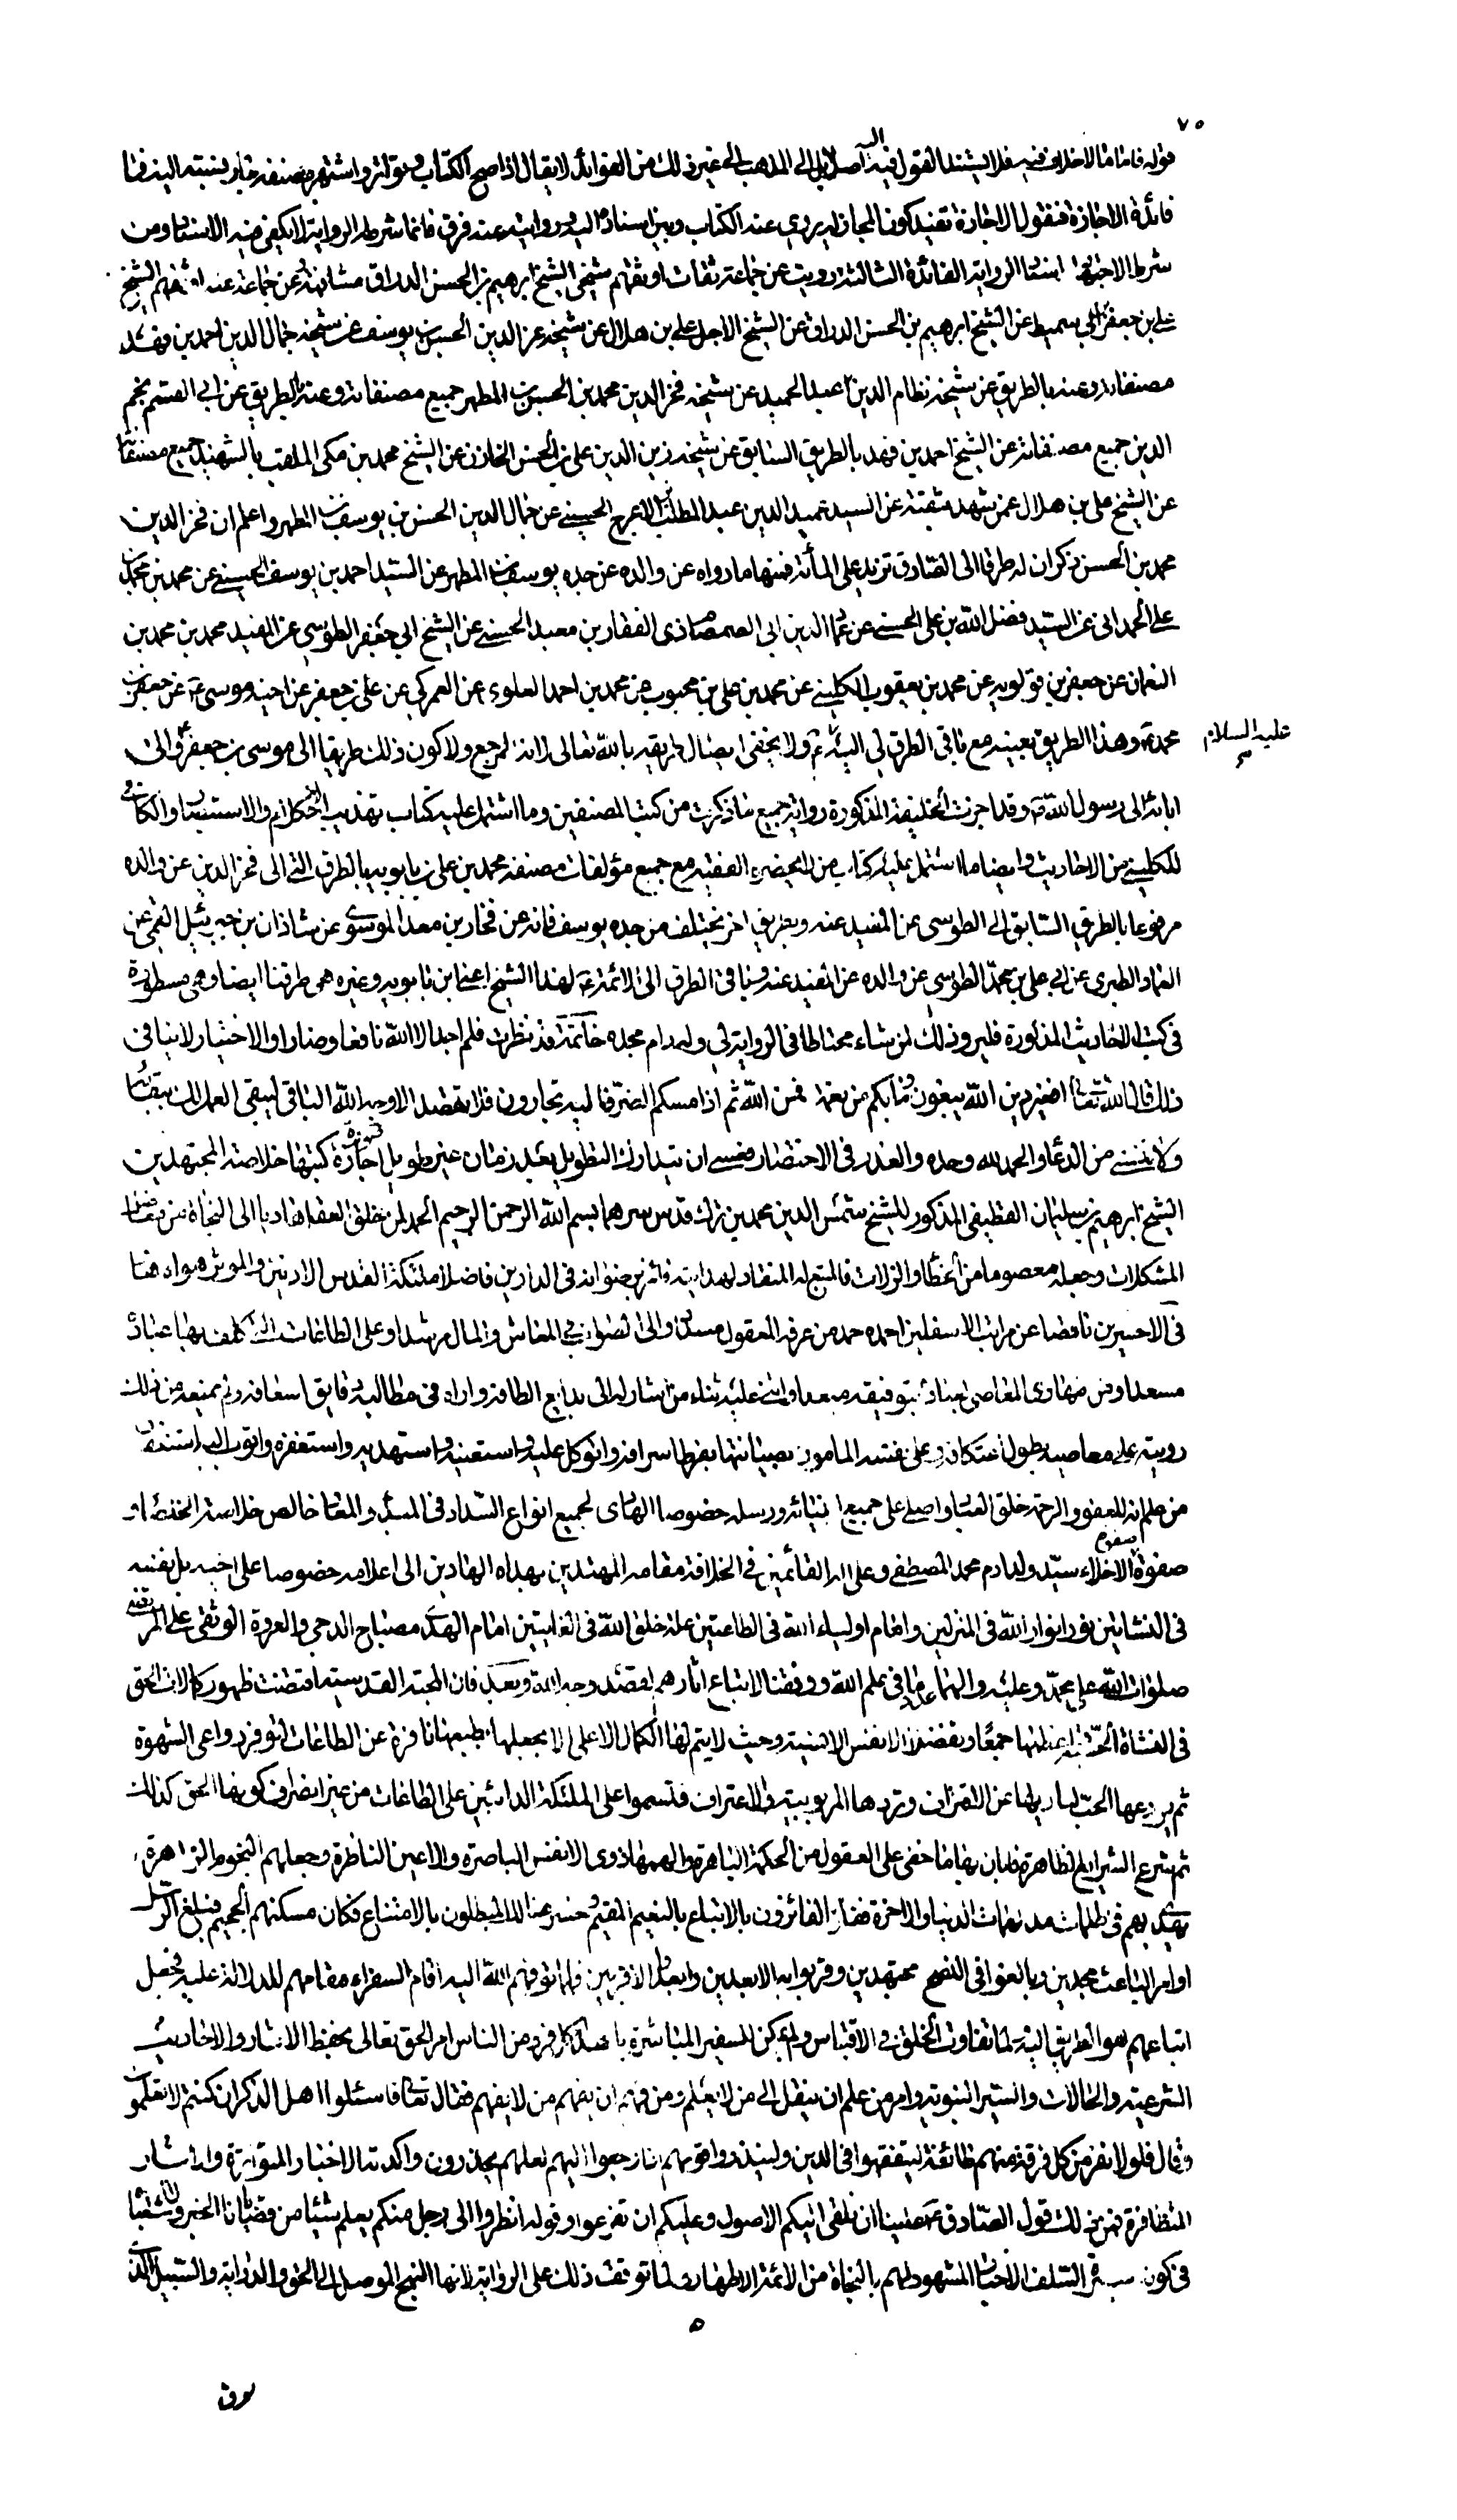 ٧٥
قوله فاما ما لا خلاف فيه فلا يستند القول فيه الى اصل بل الى المذهب الى غير ذلك من الفوائد لا يقال اذا صح الكتاب وتواتر واشتهر مصنفه جاز نسبته اليه فما
فائدة الاجازة فنقول الاجازة تفيد كون المجاز له يروي عند الكتاب وبين اسناده اليه وروايته عنه فرق فانما شرطه الرواية لا يكفي فيه الاسناد ومن
شرط الاجتهاد اتصال الرواية الفائدة الثالثة رويت عن جماعة ثقات اوثقهم شيخي الشيخ ابرهيم بن الحسن الدراق مشافهة وعن جماعة عنه اوثقهم الشيخ
علي بن جعفر بن ابي سميط عن الشيخ ابرهيم بن الحسن الدراق عن الشيخ الاجل علي بن هلال عن شيخه عز الدين الحسن بن يوسف عن شيخه جمال الدين احمد بن فهد
مصنفاته وعنه بالطريق عن شيخه نظام الدين عبد الحميد عن شيخه فخر الدين محمد بن الحسن بن المطهر جميع مصنفاته وعنه بالطريق عن ابي القسم نجم
الدين جميع مصنفاته عن الشيخ احمد بن فهد بالطريق السابق عن شيخه زين الدين علي بن الحسن الخازن عن الشيخ محمد بن مكي الملقب بالشهيد جميع مصنفاته
عن الشيخ علي بن هلال عمن شهد بثقته عن السيد عميد الدين عبد المطلب بن الاعرج الحسيني عن جمال الدين الحسن بن يوسف بن المطهر واعلم ان فخر الدين
محمد بن الحسن ذكر ان له طرقا الى الصادق تزيد على المأة فمنها ما رواه عن والده عن جده يوسف بن المطهر عن السيد احمد بن يوسف الحسيني عن محمد بن محمد بن
علي الحمداني عن السيد فضل الله بن علي الحسني عن عماد الدين ابي الصمصام ذي الفقار بن معبد الحسني عن الشيخ ابي جعفر الطوسي عن المفيد محمد بن محمد بن
النعمان عن جعفر بن قولويه عن محمد بن يعقوب الكليني عن محمد بن علي بن محبوب عن محمد بن احمد العلوي عن العمركي عن علي بن جعفر عن اخيه موسى ع عن جعفر بن
محمد ع وهذا الطريق بعينه مع باقي الطرق لي اليه ع ولا يخفى اتصال طريقه بالله تعالى لانه المرجع ولا كون ذلك طريقا الى موسى بن جعفر ع والى
عليه السلام
ابائه الى رسول الله ص وقد اجزت الخليفة المذكورة رواية جميع ما ذكرت من كتب المصنفين وما اشتمل عليه كتاب تهذيب الاحكام والاستبصار والكافي
للكليني من الاحاديث وايضا ما اشتمل عليه كتاب من لا يحضره الفقيه مع جميع مؤلفات مصنفه محمد بن علي بن بابويه بالطرق التي الى فخر الدين عن والده
مرفوعا بالطريق السابق الى الطوسي عن المفيد عنه وبطريق اخر يختلف من جده يوسف فانه عن فخار بن معد الموسوي عن شاذان بن جبرئيل القمي عن
العماد الطبري عن ابي علي بن محمد الطوسي عن والده عن المفيد عنه وباقي الطرق الى الائمة ع لهذا الشيخ اعني ابن بابويه وغيره هي طرقنا ايضا وهي مسطورة
في كتب الاحاديث المذكورة فليرو ذلك لمن شاء محتاطا في الرواية لي وله دام مجده خاتمة قد نظرت فلم اجد الا الله نافعا وضارا والاختيار لا ينافي
ذلك قال الله تعالى افغير دين الله يبغون وما بكم من نعمة فمن الله ثم اذا مسكم الضر فاليه تجارون فلا تقصد الا وجه الله الباقي ليبقى العمل لك ببقائه
ولا تنسني من الدعاء والحمد لله وحده والعذر في الاختصار فعسى ان يتدارك التطويل بعد زمان غير طويل اجازة كتبها خلاصة المجتهدين
الشيخ ابرهيم بن سليمان القطيفي المذكور للشيخ شمس الدين محمد بن ترك قدس سرهما بسم الله الرحمن الرحيم الحمد لمن خلق العقل هاديا الى النجاة من
المشكلات وجعله معصوما من الخطأ والزلات فالمتبع له المنقاد لهدايته فائز برضوانه في الدارين فاضلا ملئكة القدس الادنين والموثر هواه
في الاخسرين ناقصا عن مراتب الاسفلين احمده حمد من عرفه المعقول مسددا والى الصواب في المعاش والمال مرشدا وعلى الطاعات التي كلف بها عباده
مسعدا وعن مهاوي المعاصي لعباده بتوفيقه مبعدا واثني عليه ثناء من اشار له الى بدايع الطافه واراه في مطالبه فايق اسعافه ولم يمنعه من ذلك
رويته على معاصيه وطول اعتكافه وعلى نفسه المامور بصيانتها بفرط اسرافه واتوكل عليه واستعينه واستهديه واستغفره واتوب اليه
من علم انه للعفو والرحمة خلق العباد واصلي على جميع انبيائه ورسله خصوصا الهادي لجميع انواع السداد في المبدء والمعاد خالص خلاصة
صفوة الاخلاء سيد ولد ادم محمد المصطفى وعلى اله القائمين في الخلافة مقامه المهتدين بهداه الهادين الى اعلامه خصوصا على اخيه بل نفسه
في النشاتين نور انوار الله في المنزلين وامام اولياء الله في الطاعتين علة خلق الله في الغايتين امام الهدى مصباح الدجى والعروة الوثقى علي المرتضى
صلوات الله على محمد وعليه والهما عدد ما في علم الله ووفقنا لاتباع اثارهم بقصد وجه الله وبعد فان المحبة القدسية اقتضت ظهور كمالات الحق
في النشاة جمعا وتفضيلا لانفس الانسية وحيث لا يتم لها الكمال الاعلى الا بجعلها بطبعها نافرة عن الطاعات لتوفر دواعي الشهوة
ثم يردعها الحب لباريها عن النفران وتردها المربوبية والاعتراف فتسموا على الملئكة الدائبين على الطاعات من غير انصراف كونها الحق كذلك
ثم شرع الشرايع الظاهرة فابان بها ما خفي على العقول من الحكمة الباهرة والهمها ذوي الانفس الباصرة والاعين الناظرة وجعلهم النجوم الزاهرة
يهتدى بهم في ظلمات مدلهمات الدنيا والاخرة ففاز الفائزون بالاتباع بالنعيم المقيم وخسر هنالك المبطلون بالامتناع فكان مسكنهم الجحيم فبلغ الرسل
اوامر الباعث مجدين وبالغوا في النصح مجتهدين وقربوا به الابعدين وابعدوا الاقربين فلما توفيهم الله اليه اقام السفراء مقامهم للدلالة عليه فجعل
اتباعهم هو الطريق اليه لما تفاوت الخلق في الاقتباس ولم يمكن السفير المباشرة باحد كل فرد من الناس امر الحق تعالى بحفظ الاثار والاحاديث
الشرعية والحالات والسير النبوية وامر من علم ان ينقل الى من لا يعلم ومن فهم ان يفهم من لا يفهم فقال تعالى فاسئلوا اهل الذكر ان كنتم لا تعلمون
وقال فلولا نفر من كل فرقة منهم طائفة ليتفقهوا في الدين ولينذروا قومهم اذا رجعوا اليهم لعلهم يحذرون واكدته الاخبار المتواترة والاثار
المتظافرة فمن ذلك قول الصادق ع علينا ان نلقي اليكم الاصول وعليكم ان تفرعوا وقوله انظروا الى رجل منكم يعلم شيئا من قضايانا الخبر
في كون سيرة السلف الاخيار المشهود لهم بالنجاة من الائمة الاطهار ولما توقف ذلك على الرواية لانها النهج الموصل الى الحق والدراية والسبيل الذي